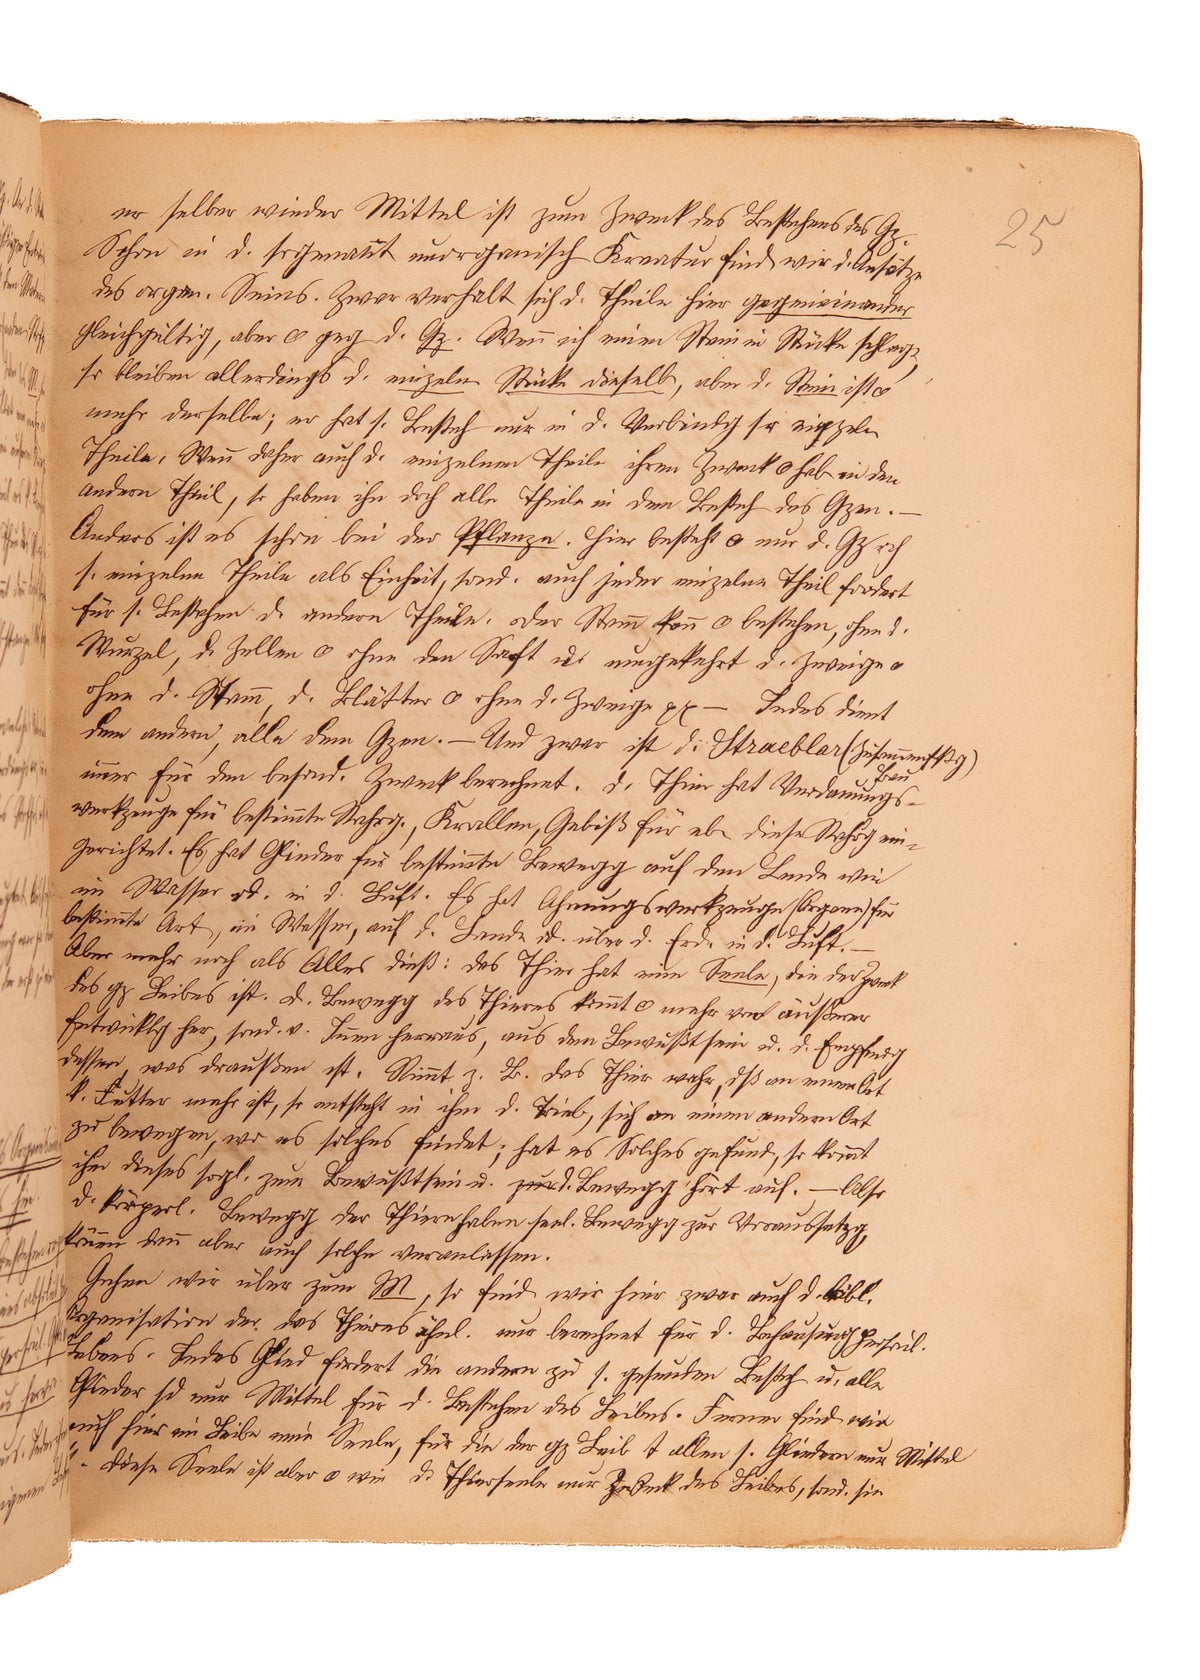 25
er selber wieder Mittel ist zum Zweck des Bestehens des Gz.
Schon in d. sogenannt unorganisch Kreatur find wir d. Ansätze
des organ. Seins. Zwar verhält sich d. Theile hier gegeneinander
gleichgültig, aber o geg d. Gz. Wenn ich einen Stein in Stücke schlage,
so bleiben allerdings d. einzeln Stücke dieselb, aber d. Stein ist o
mehr derselbe; er hat s. Besteh nur in d. Verbindg sr einzeln
Theile. Wenn daher auch d. einzelnen Theile ihren Zweck o hab in den
andern Theil, so haben ihn doch alle Theile in dem Besteh des Gzen. —
Anders ist es schon bei der Pflanze. Hier besteht o nur d. Gz dch
s. einzelne Theile als Einheit, sond. auch jeder einzelne Theil fordert
für s. Bestehen d. andern Theile. oder Stamm kann o bestehen, ohne d.
Wurzel, d. Zellen o ohne den Saft u. umgekehrt d. Zweige o
ohne d. Stamm, d. Blätter o ohne d. Zweige pp — Jedes dient
dem andern, alle dem Gzen. — Und zwar ist d.
immer für den besond. Zweck berechnet. d. Thier hat Verdauungs-
werkzeuge für bestimmte Nahrg., Krallen, Gebiß für eb diese Nahrg ein-
gerichtet. Es hat Glieder für bestimmte Bewegg auf dem Lande wie
im Wasser od. in d. Luft. Es hat Ahmungswerkzeuge (Organe) für
bestimmte Art, im Wasser, auf d. Lande od. über d. Erde in d. Luft. —
Aber mehr noch als Alles dieß: das Thier hat eine Seele, die der Zweck
des gz Leibes ist. d. Bewegg des Thieres kommt o mehr von äußerer
Entwicklg her, sond. v. Innen herraus, aus dem Bewußtsein u. d. Empfindg
dessen, was draußen ist. Nimmt z. B. das Thier wahr, dß an einem Ort
k. Futter mehr ist, so entsteht in ihm d. Trieb, sich an einen andern Ort
zu bewegen, wo es solches findet; hat es Solches gefund, so kommt
ihm dieses sogl. zum Bewußtsein u. d. Bewegg hört auf. — Also
d. körperl. Bewegg der Thiere haben seel. Bewegg zur Voraussetzg,
können dann aber auch solche veranlassen.
Gehen wir über zum M, so find wir hier zwar auch d. leibl.
Organisation der des Thieres ähnl. nur berechnet für d. Behausung
Lebens. Jedes Glied fordert die andern zu s. gesunden Besteh u. alle
Glieder sd nur Mittel für d. Bestehen des Leibes. Ferner find wir
auch hier im Leibe eine Seele, für die der gz Leib + allen s. Gliedern nur Mittel
Diese Seele ist aber o wie d. Thierseele nur Zweck des Leibes, sond. sie